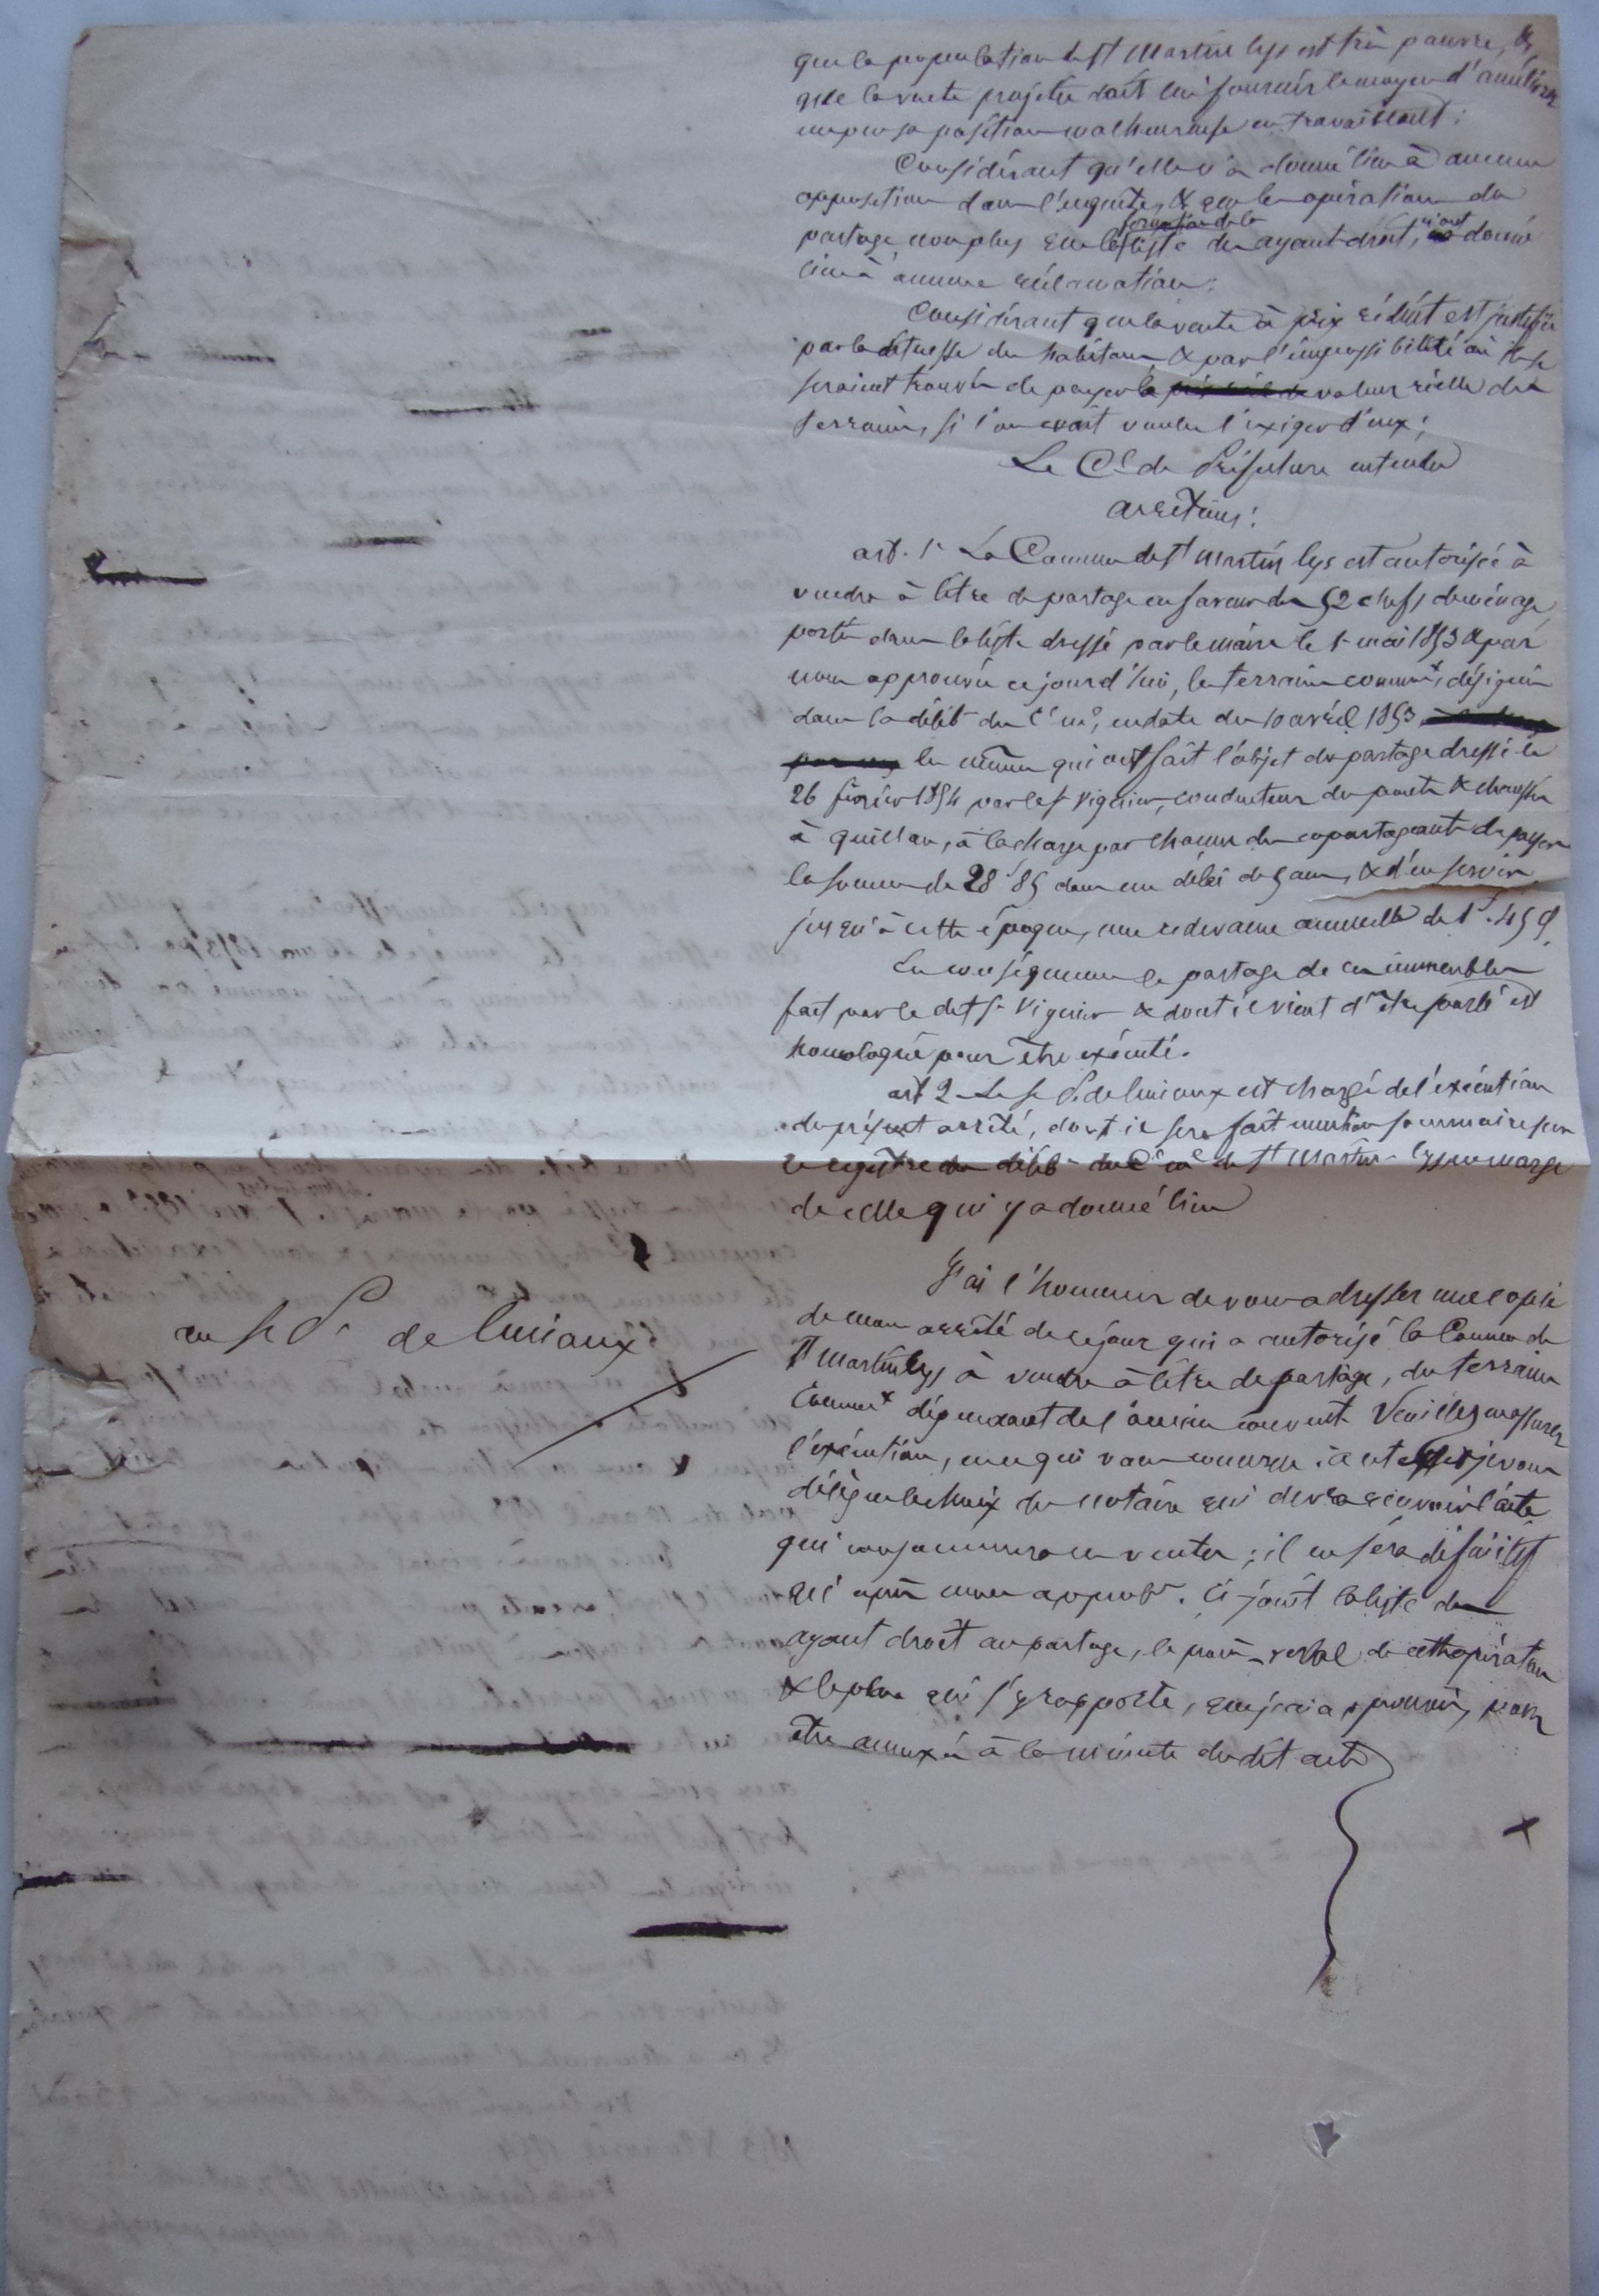 que la population de St Martin lys est très pauvre, &
que la vente projetée doit lui fournir le moyen d'améliorer
un peu sa position malheureuse en travaillant;
Considérant qu'elle n'a donné lieu à aucune
opposition dans l'enquête, & que les opérations du
partage non plus que la formation de la liste des ayant-droit, n'ont donné
lieu à aucune réclamation;
Considérant que la vente à prix réduit est justifiée
par la détresse des habitans & par l'impossibilité où ils se
seraient trouvés de payer la valeur réelle des
terrains, si l'on avait voulu l'exiger d'eux;
Le Cel de Préfecture entendu
arrêtons:
art. 1er La Commune de St Martin lys est autorisée à
vendre à titre de partage en faveur des 52 chefs de ménage
portés dans la liste dressée par le maire le 1er mai 1853 & par
nous approuvée ce jourd'hui, les terrains commux désignés
dans la délib. du Cel mal, en date du 10 avril 1853
les mêmes qui ont fait l'objet du partage dressé le
26 février 1854 par le sr Viguier, conducteur des ponts & chaussées
à quillan, à la charge par chacun des copartageants de payer
la somme de 28f 85 dans un délai de 5 ans, & d'en servir
jusqu'à cette époque, une redevance annuelle de 1f.45 c,
En conséquence le partage de ces immeubles
fait par le dit sr Viguier & dont il vient d'être parlé est
homologué pour être exécuté.
art 2. Le s. P. de limoux est chargé de l'exécution
du présent arrêté, dont il sera fait mention sommaire sur
le registre des délib. du Cel mal de St Martin-lys en marge
de celle qui y a donné lieu
au s. P. de limoux
J'ai l'honneur de vous adresser une copie
de mon arrêté de ce jour qui a autorisé la Commune de
St Martin lys à vendre à titre de partage, des terrains
commux dépendant de l'ancien couvent. Veuillez en assurer
l'exécution, en ce qui vous concerne; je vous
délègue le choix du notaire qui devra recevoir l'acte
qui consommera ces ventes; il ne sera définitif
qu'après mon approbon. Ci-joint la liste des
ayant droit au partage, le procès-verbal de cette opération
& le plan qui s'y rapporte, que j'ai approuvés, pour
être annexés à la minute dudit acte